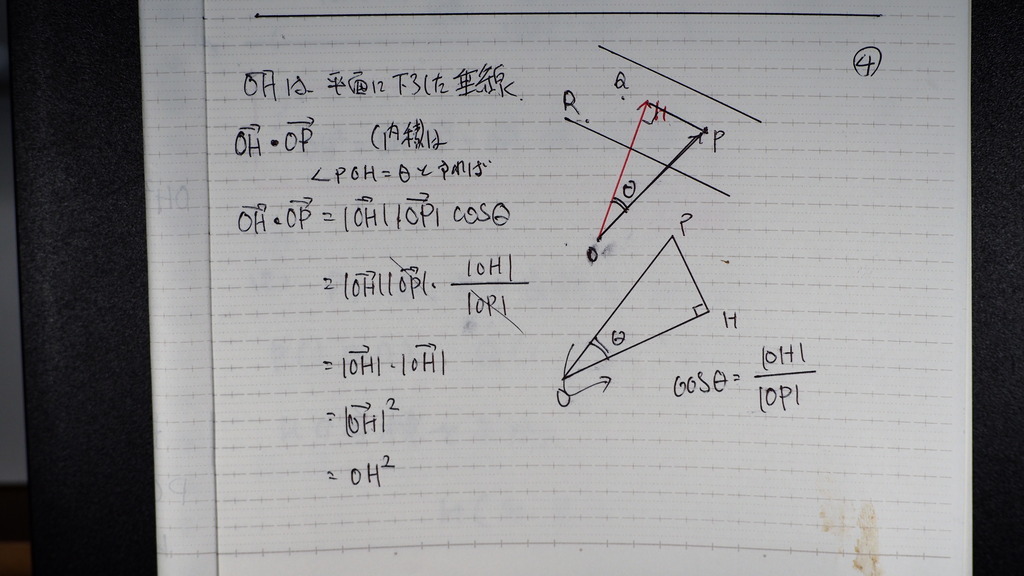 ④
OHは 平面に下ろした垂線.
OH・OP (内積)は
∠POH=θとすれば
OH・OP = |OH||OP| cosθ
= |OH||OP|・|OH|/|OP|
= |OH|・|OH|
= |OH|²
= OH²
Q
R
H
P
θ
O
P
H
θ
O
cosθ= |OH|/|OP|